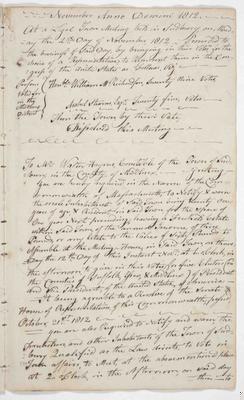 November Anno Domini 1812.
At a Legal Town Meeting held in Sudbury on
day the 2d Day of November 1812. Proceeded to
the business of Said Day by bringing in their Votes for the
choice of a Representative to Represent them in the Con-
gress of the United States as follows Viz
Hon. William M Richardson Seventy three Votes
five Votes
Then the Town by their Vote
Dissolved this Meeting
To Mr. Walter Haynes Constable of the Town of Sud-
bury in the County of Middlesex Greeting
You are hereby required in the Name of the Com-
monwealth of Massachusetts to Notify & warn
the male Inhabitants of Said Town being twenty one
years of age & Resident in Said Town for the Space of
one year Next preceding having a Freehold estate
within Said Town of the annual Income of three
Pounds or any estate to the value of Sixty Pounds to
assemble at the Meeting House in Said Town on thurs
day the 12th Day of this Instant Nov. at
the afternoon to give in their votes for
the Counties of & Middlesex of President
and Vice President of the United States of America
It being agreeable to a Resolve of the
House of Representatives of this Commonwealth passed
October 1812
you are also Required to Notify and warn the
Freeholders and other Inhabitants of the Town of Sud-
bury Qualified as the Law directs to Vote in
Town affairs to Meet at the abovementioned place
at 2 o'Clock in the Afternoon on said day